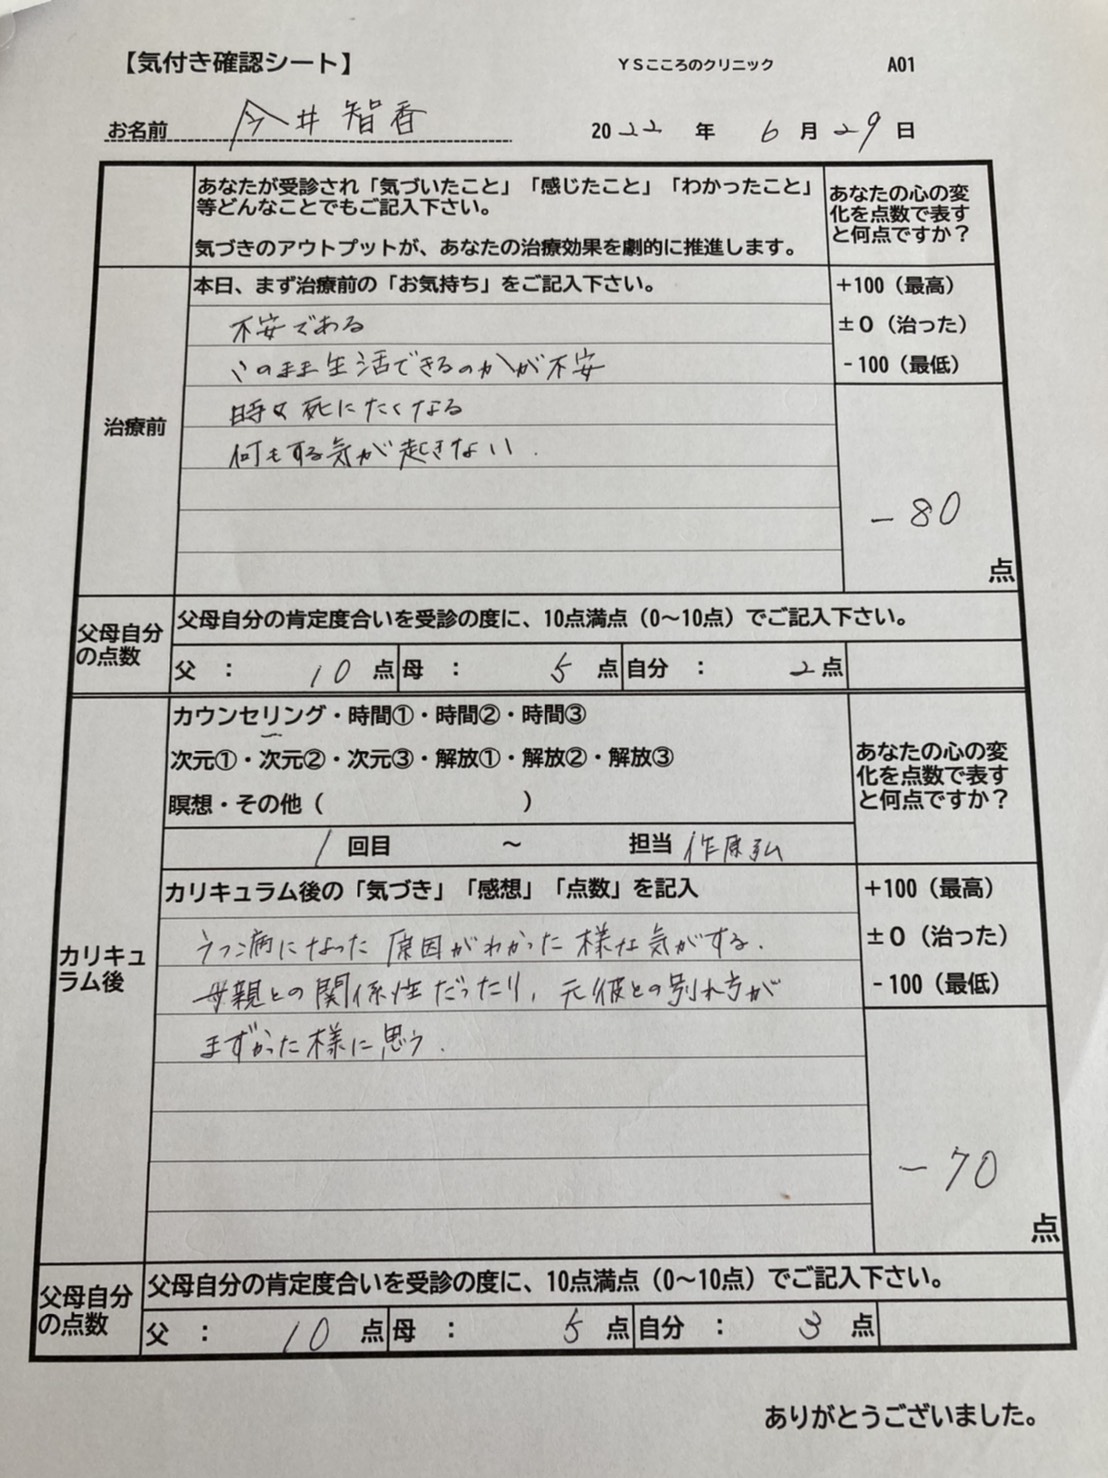 【気付き確認シート】 YSこころのクリニック A01
お名前 今井智香 2022年6月29日
あなたが受診され「気づいたこと」「感じたこと」「わかったこと」
等どんなことでもご記入下さい。
気づきのアウトプットが、あなたの治療効果を劇的に推進します。
あなたの心の変
化を点数で表す
と何点ですか？
治療前
本日、まず治療前の「お気持ち」をご記入下さい。
不安である
このまま生活できるのかが不安
時々死にたくなる
何もする気が起きない.
+100（最高）
±0（治った）
-100（最低）
-80
点
父母自分
の点数
父母自分の肯定度合いを受診の度に、10点満点（0〜10点）でご記入下さい。
父 ： 10 点 母 ： 5 点 自分 ： 2点
カウンセリング・時間①・時間②・時間③
次元①・次元②・次元③・解放①・解放②・解放③
瞑想・その他（ ）
1 回目 〜 担当 作原弘
あなたの心の変
化を点数で表す
と何点ですか？
カリキュ
ラム後
カリキュラム後の「気づき」「感想」「点数」を記入
うつ病になった原因がわかった様な気がする.
母親との関係性だったり, 元彼との別れ方が
まずかった様に思う.
+100（最高）
±0（治った）
-100（最低）
-70
点
父母自分
の点数
父母自分の肯定度合いを受診の度に、10点満点（0〜10点）でご記入下さい。
父 ： 10 点 母 ： 5 点 自分 ： 3 点
ありがとうございました。